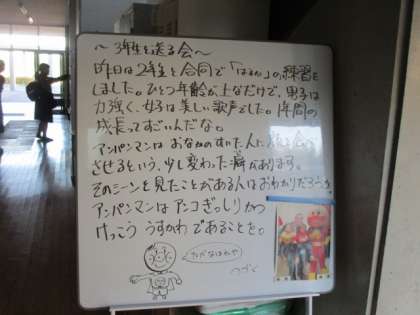 ～3年生を送る会～
昨日は2年生と合同で「はるか」の練習を
しました。ひとつ年齢が上なだけで、男子は
力強く、女子は美しい歌声でした。1年間の
成長ってすごいんだな。
アンパンマンは おなかのすいた人に
させるという、少し変わった癖があります。
そのシーンを見たことがある人はおわかりだろうか。
アンパンマンはアンコぎっしりかつ
けっこう うすかわ であることを。
ただなはれや
つづく